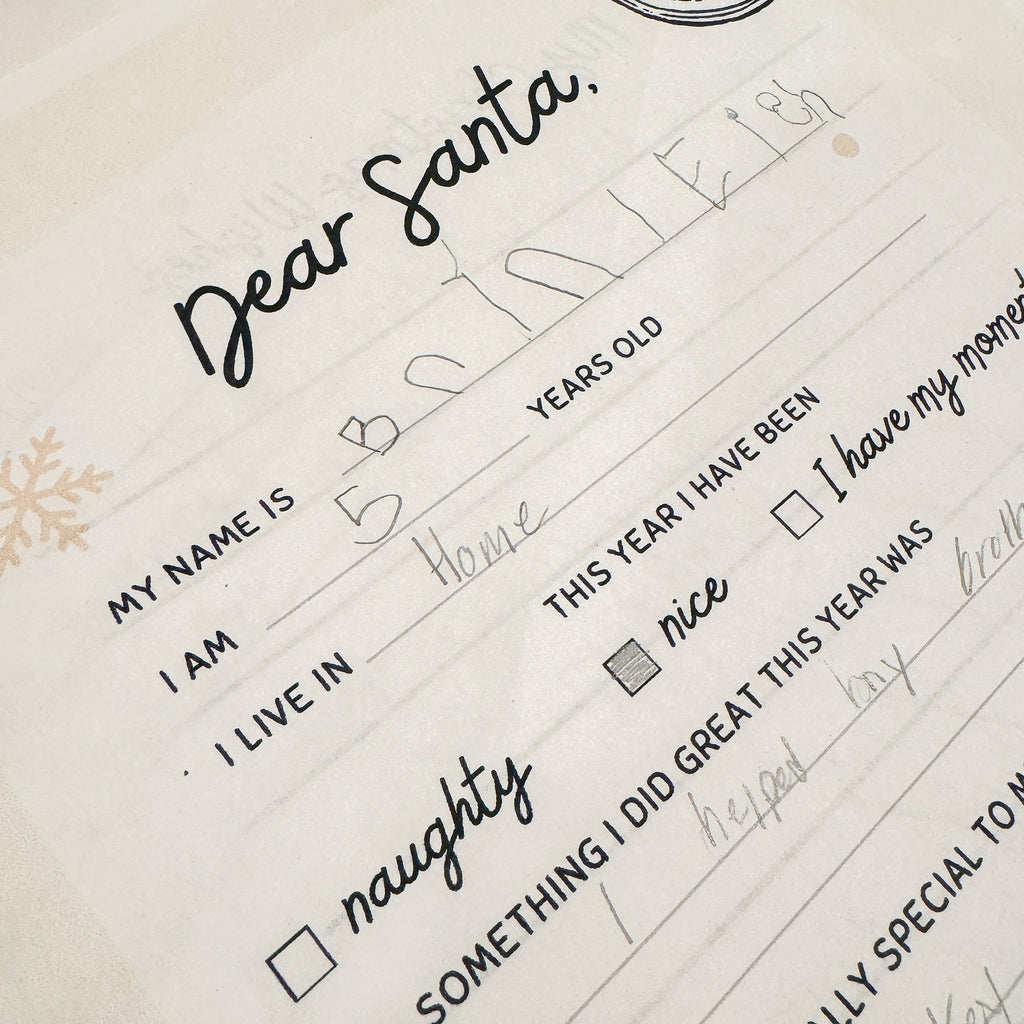 Dear Santa,
MY NAME IS
I AM 5 YEARS OLD
I LIVE IN Home
THIS YEAR I HAVE BEEN
naughty nice I have my moment
SOMETHING I DID GREAT THIS YEAR WAS
I helped my broth
ALLY SPECIAL TO M